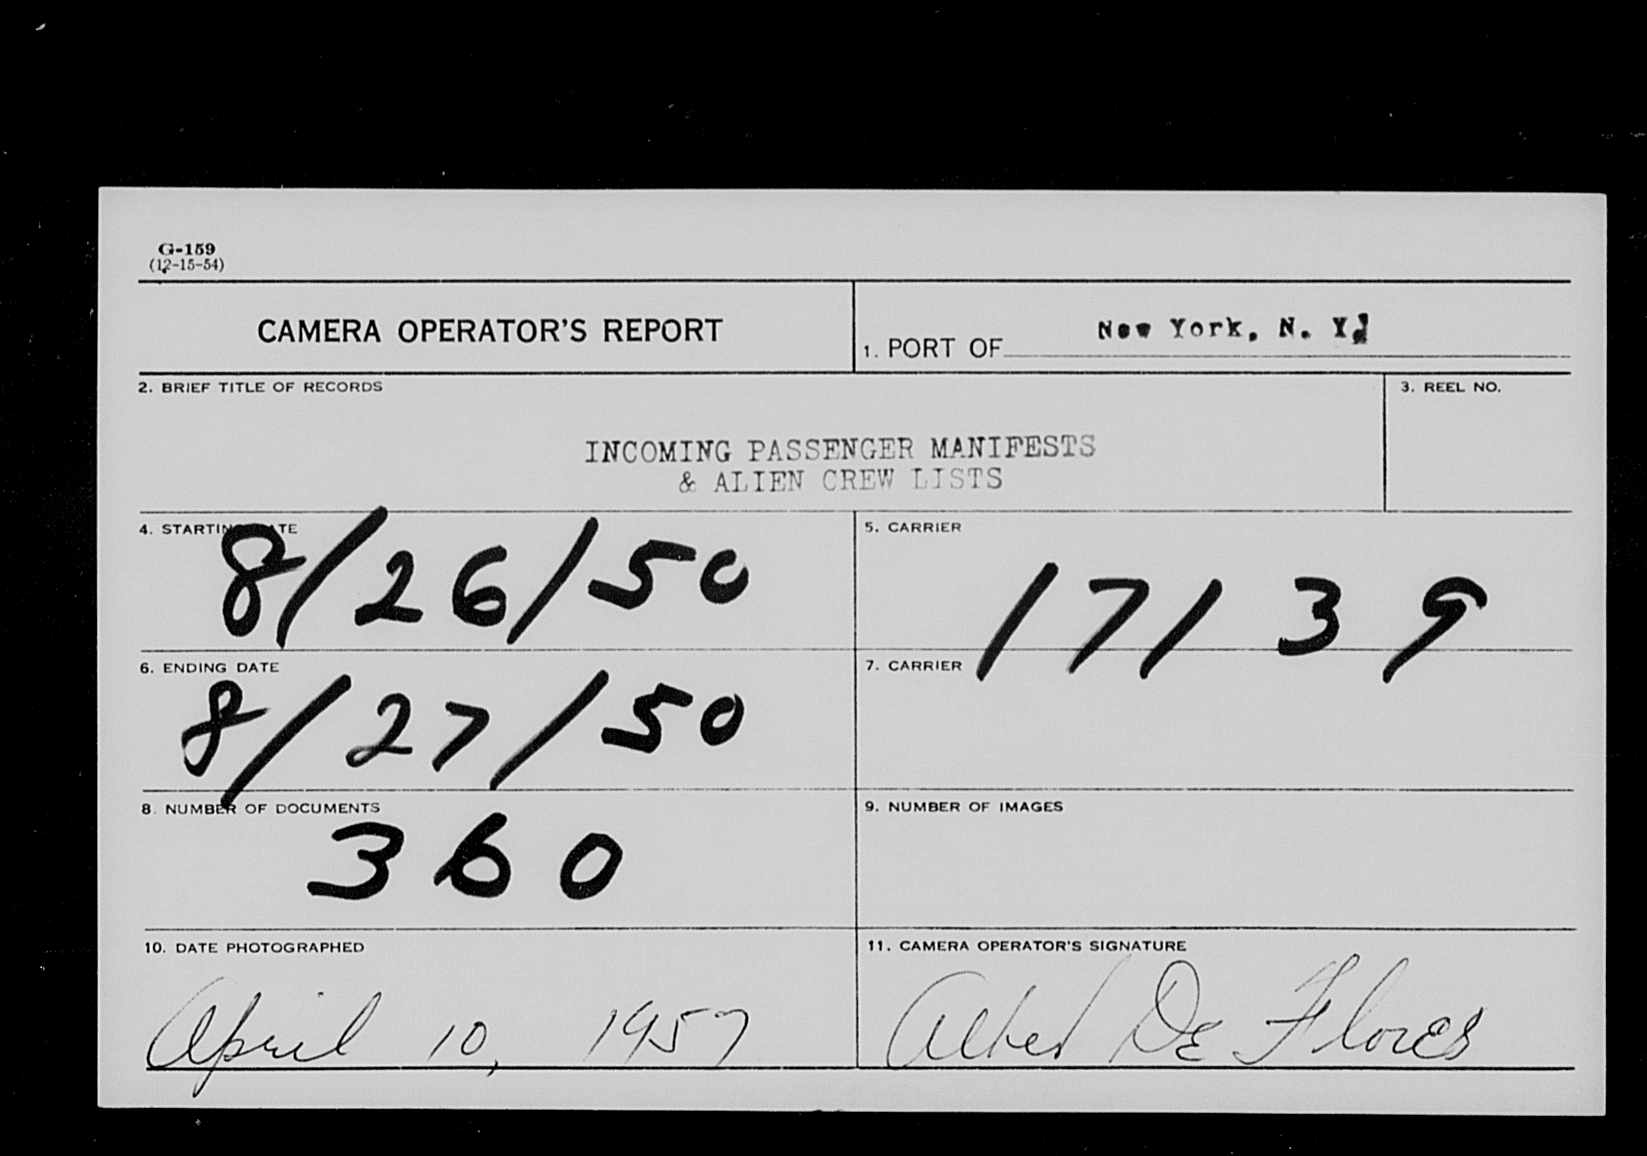 G-159
(12-15-54)
CAMERA OPERATOR'S REPORT
1. PORT OF New York, N. Y.
2. BRIEF TITLE OF RECORDS
INCOMING PASSENGER MANIFESTS
& ALIEN CREW LISTS
3. REEL NO.
4. STARTING DATE
8/26/50
5. CARRIER
17139
6. ENDING DATE
8/27/50
7. CARRIER
8. NUMBER OF DOCUMENTS
360
9. NUMBER OF IMAGES
10. DATE PHOTOGRAPHED
April 10, 1957
11. CAMERA OPERATOR'S SIGNATURE
Albert De Flores